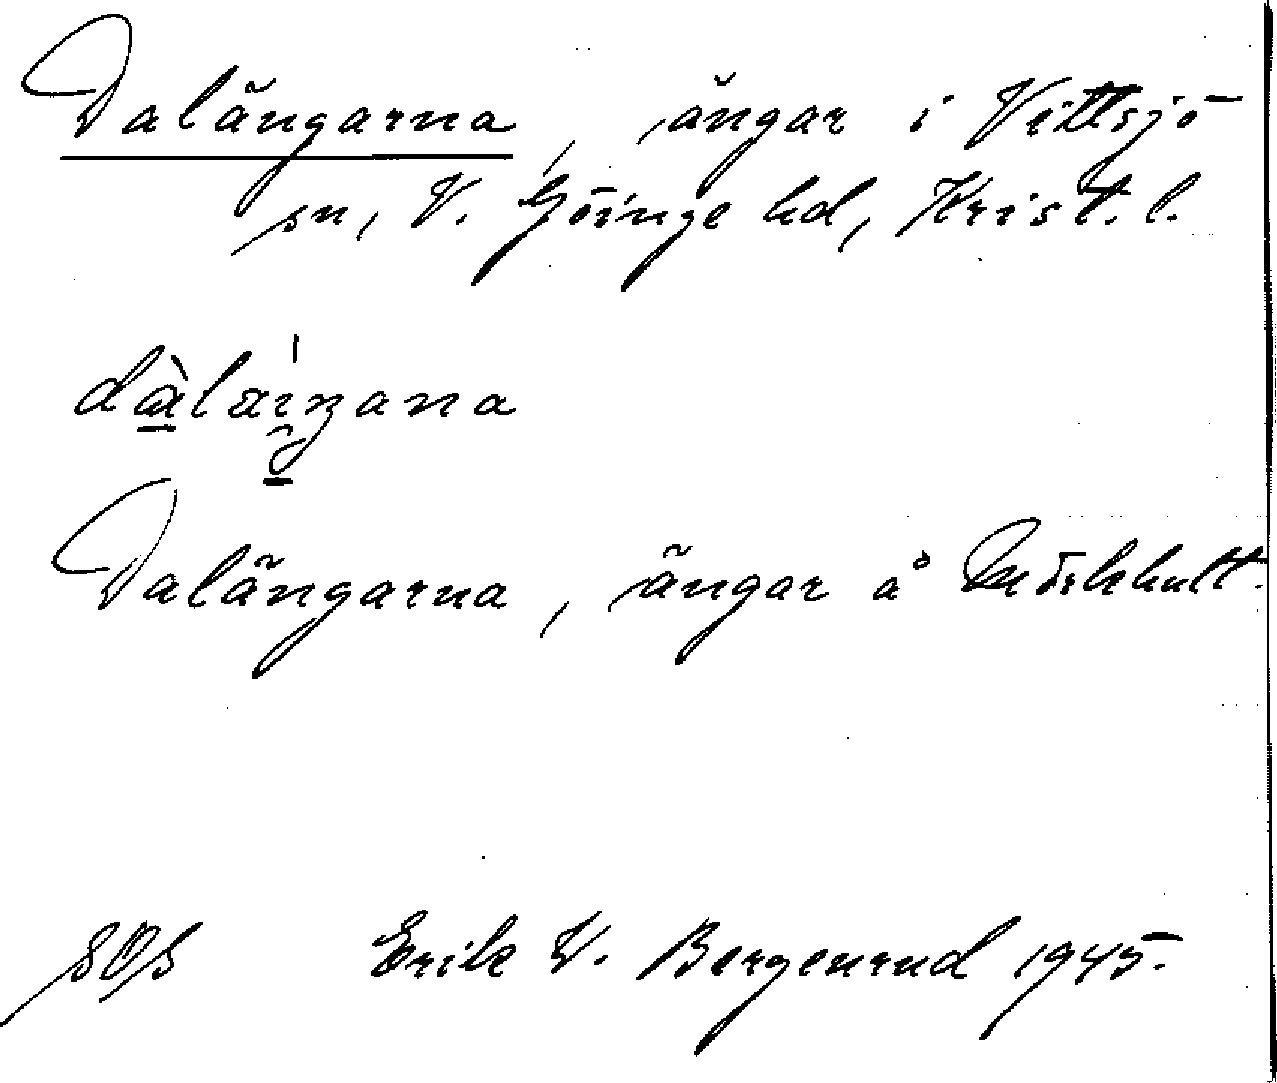 Dalängarna, ängar i Vittsjö
sn, V. Göinge hd, Krist. l.
Dalängarna, ängar å Mölkhult.
SOS Erik W. Bergenrud 1945.